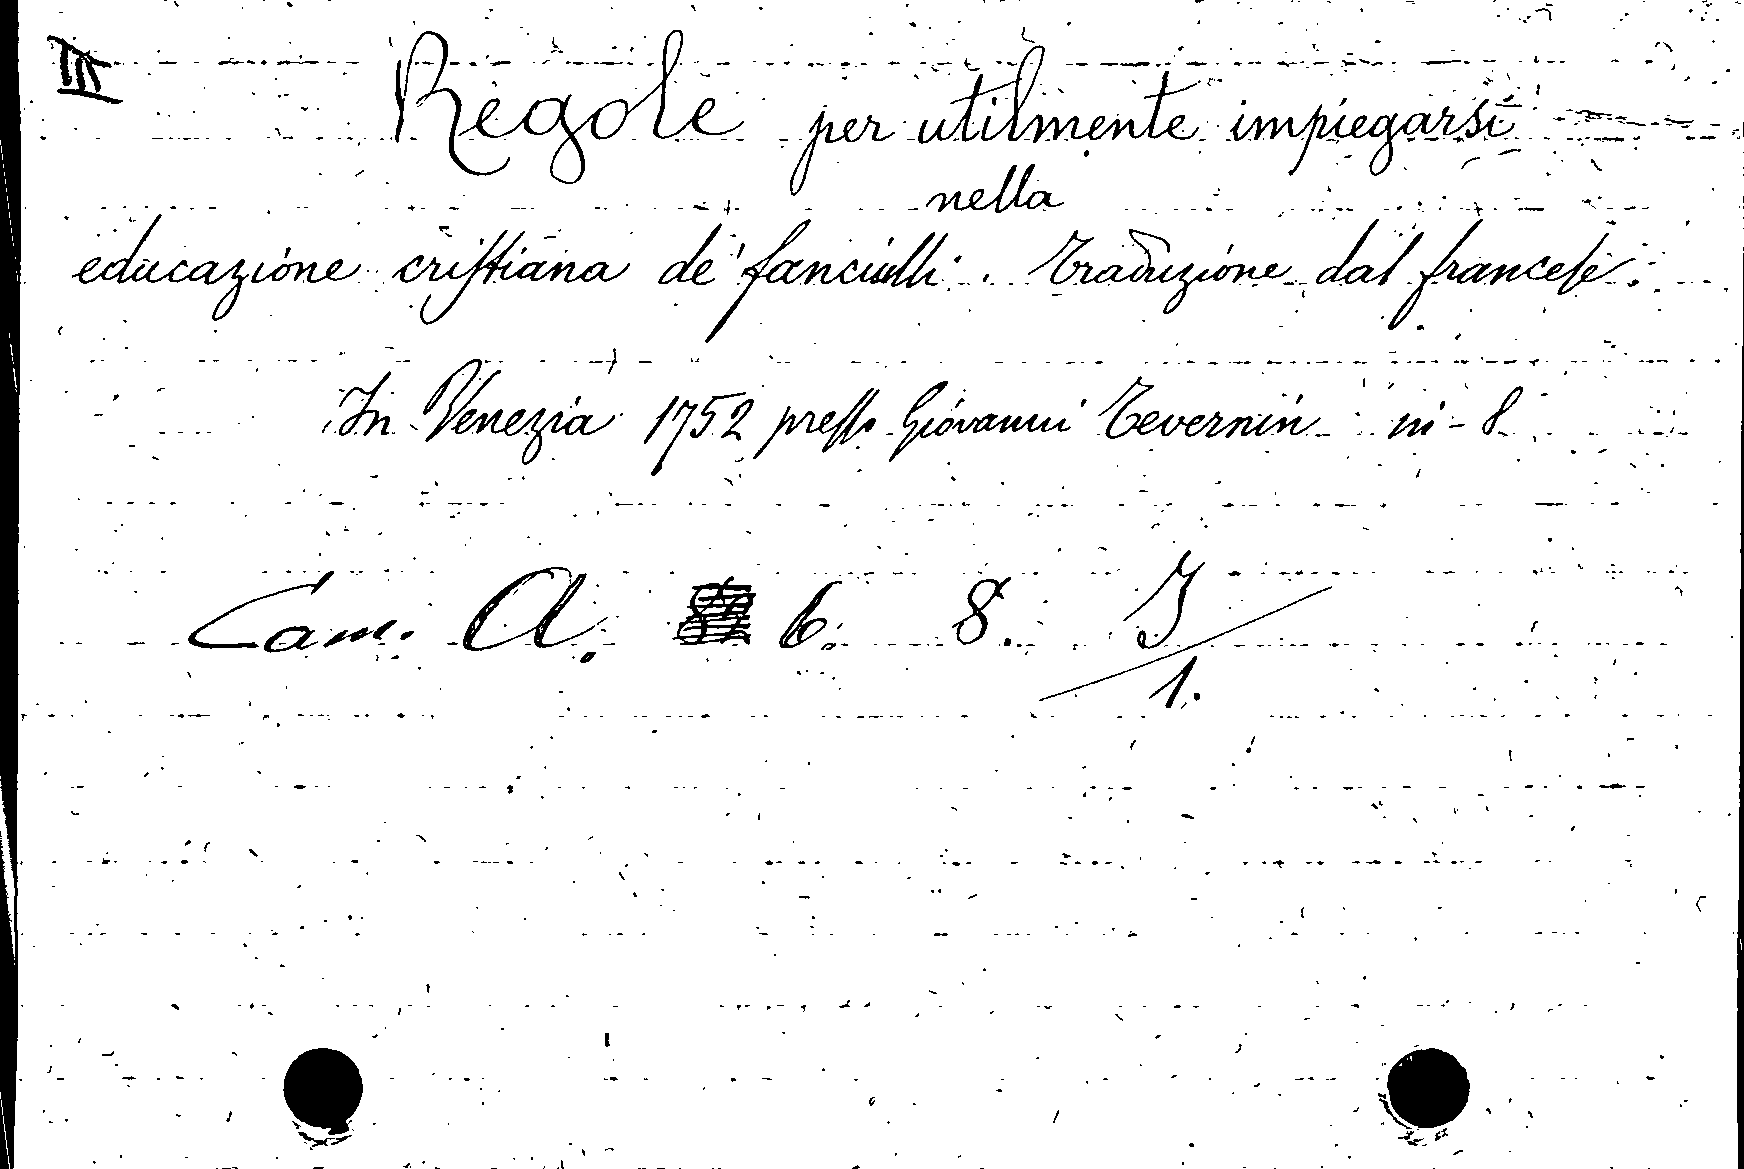 III
Regole per utilmente impiegarsi
nella
educazione criſtiana de' fanciulli. Traduzione dal franceſe.
In Venezia 1752 preſſo Giovanni Tevernin in-8
Cam. A. 6. 8. I/1.